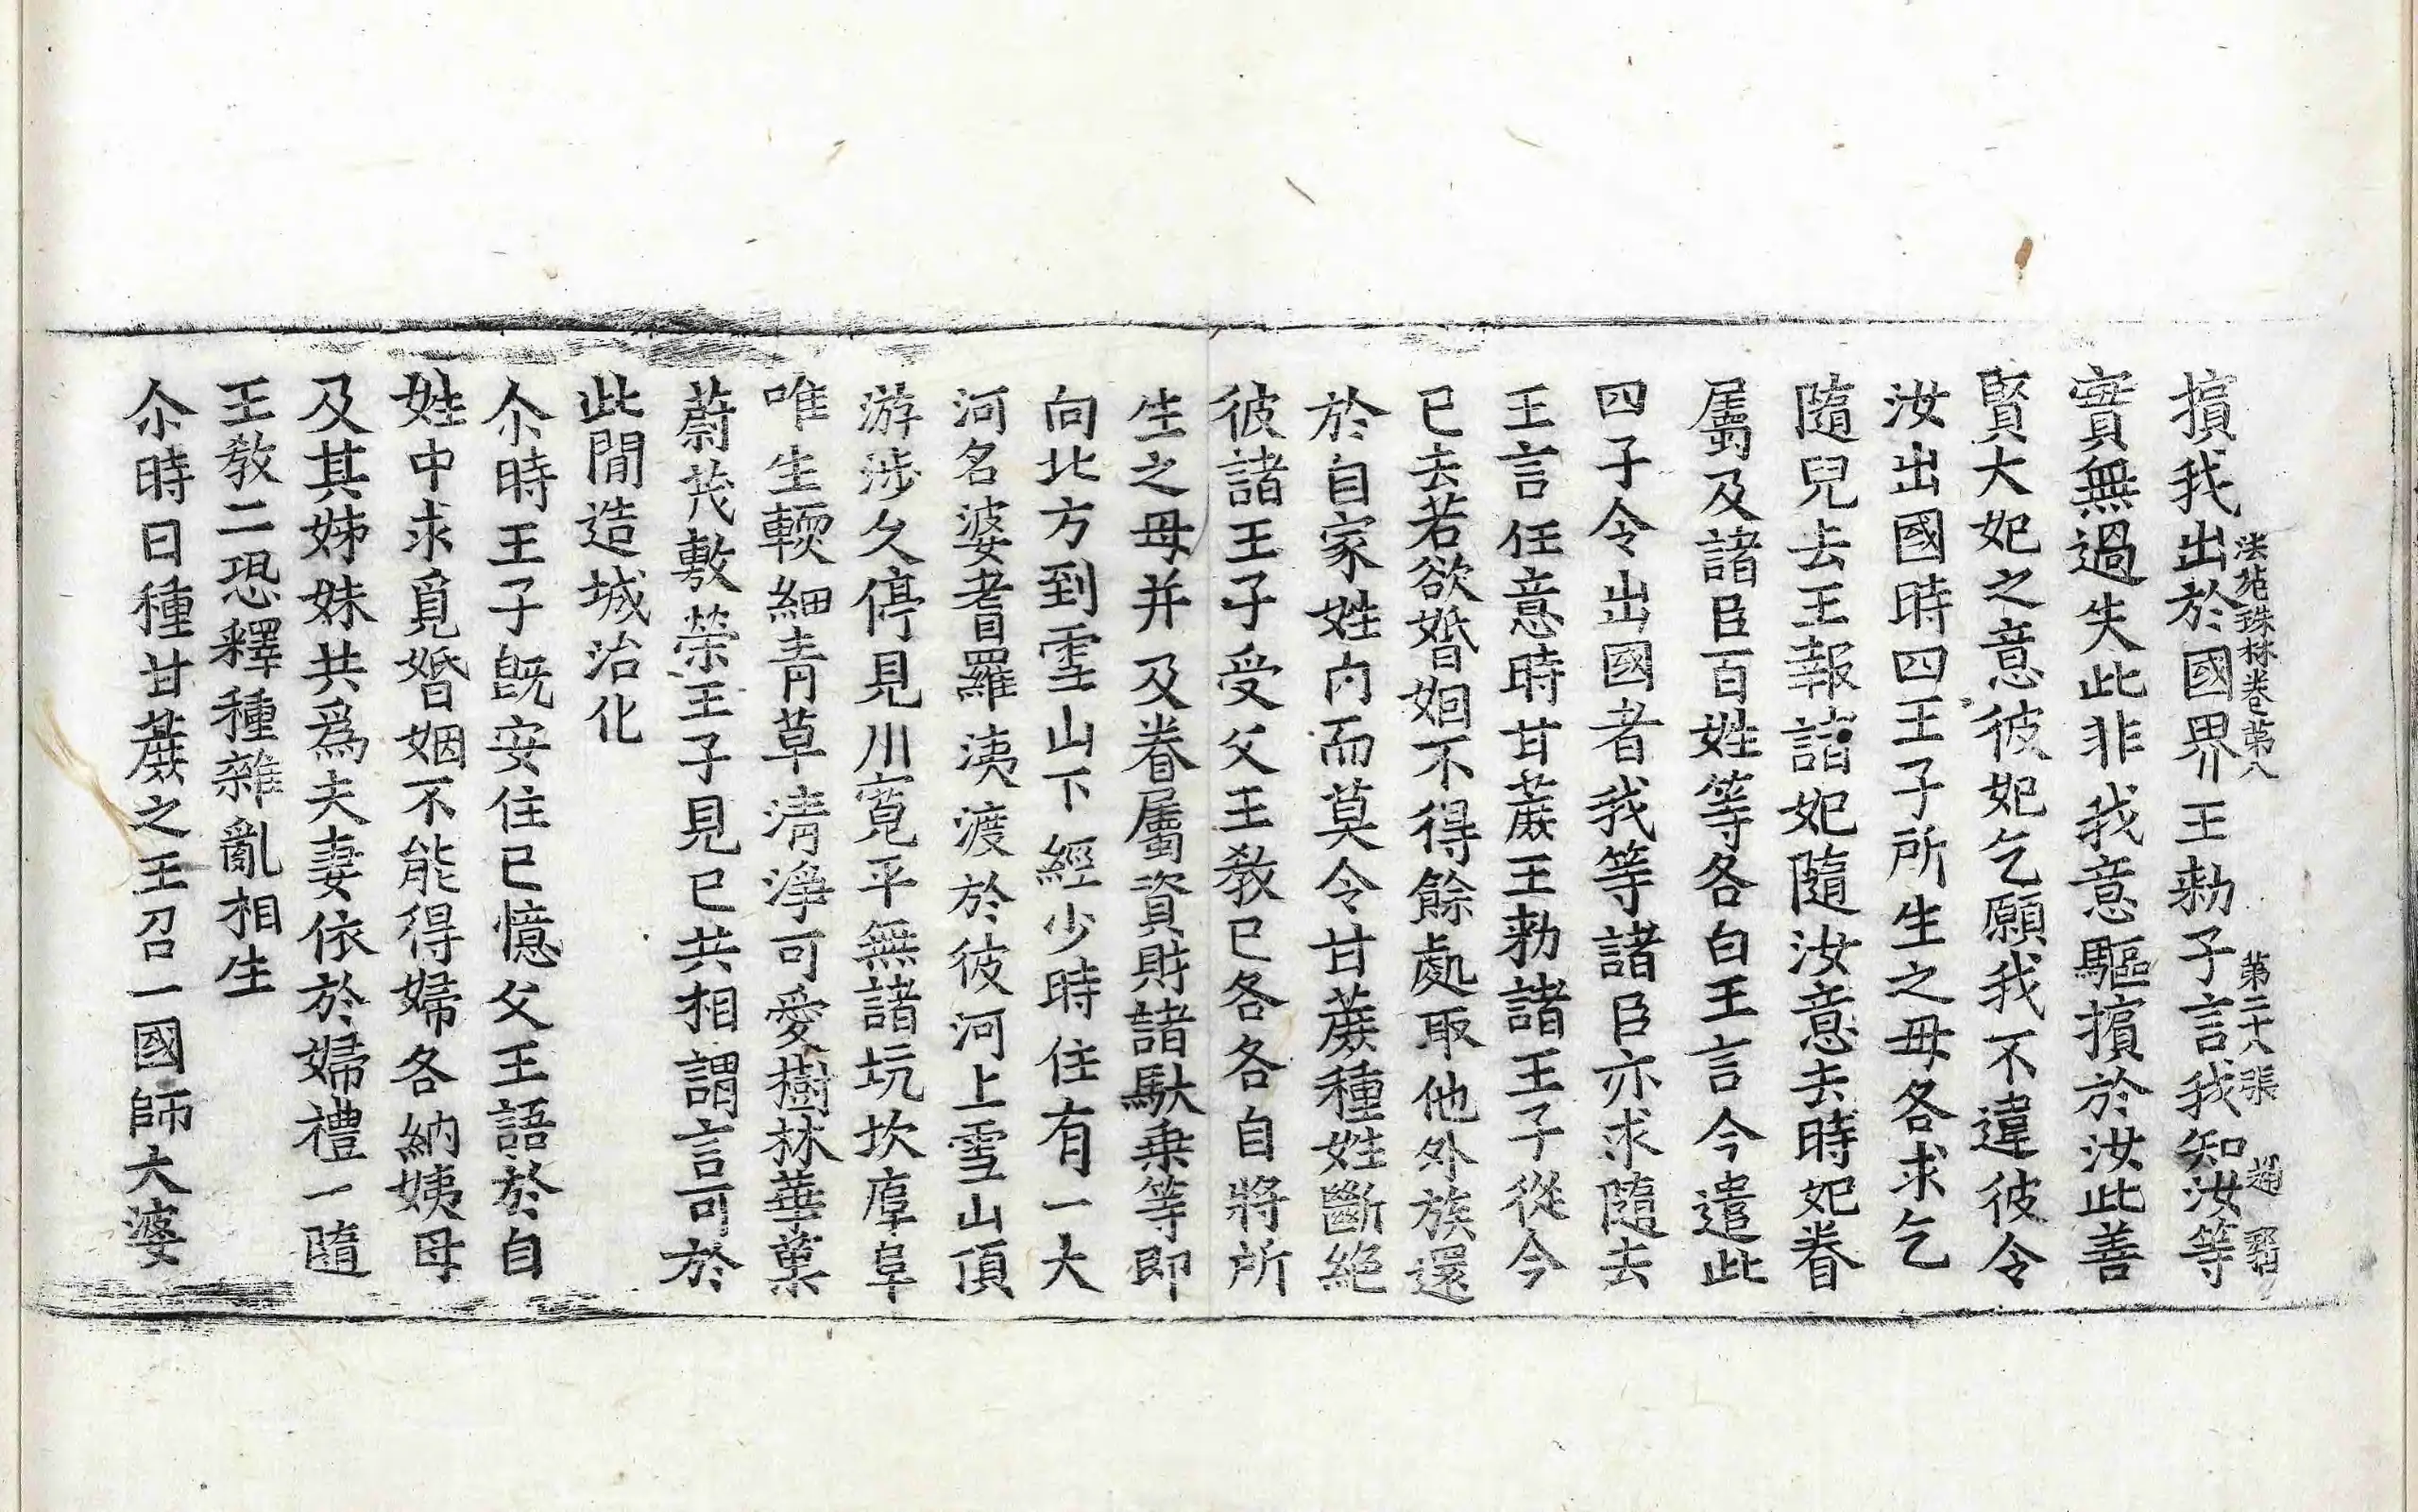 法苑珠林卷第八 第二十八張 通
擯我出於國界王勑子言我知汝等
實無過失此非我意驅擯於汝此善
賢大妃之意彼妃乞願我不違彼令
汝出國時四王子所生之母各求乞
隨兒去王報諸妃隨汝意去時妃眷
屬及諸臣百姓等各白王言今遣此
四子令出國者我等諸臣亦求隨去
王言任意時甘蔗王勑諸王子從今
已去若欲婚姻不得餘處取他外族還
於自家姓內而莫令甘蔗種姓斷絕
彼諸王子受父王教已各各自將所
生之母并及眷屬資財諸馱乗等即
向北方到雪山下經少時住有一大
河名婆耆羅洟渡於彼河上雪山頂
游涉久停見川寬平無諸坑坎埠阜
唯生輭細青草清淨可愛樹林華菓
蔚茂敷榮王子見已共相謂言可於
此間造城治化
尒時王子旣安住已憶父王語於自
姓中求覓婚姻不能得婦各納姨母
及其姊妹共爲夫妻依於婦禮一隨
王教二恐釋種雜亂相生
尒時日種甘蔗之王召一國師大婆